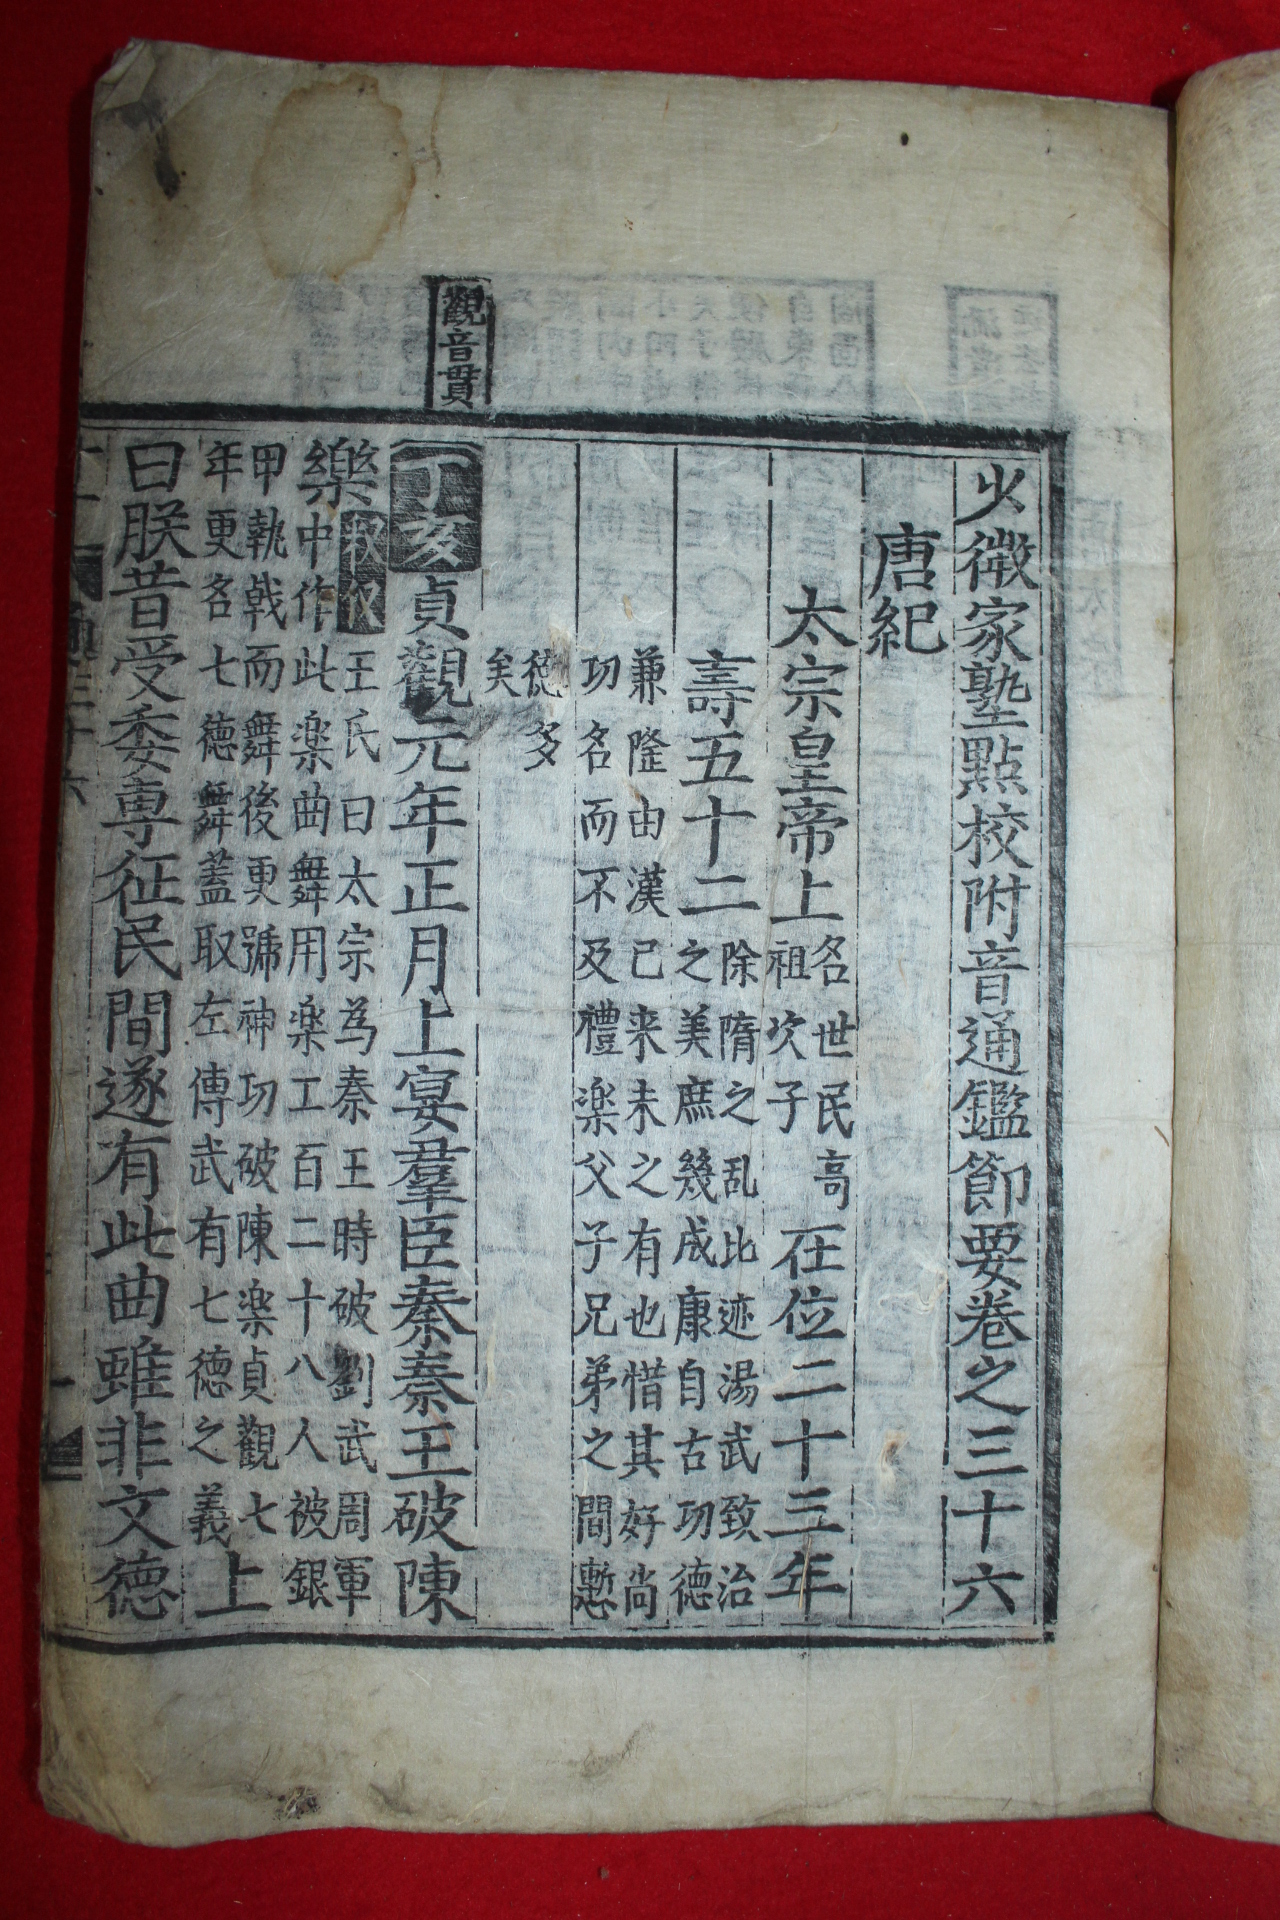 少微家塾點校附音通鑑節要卷之三十六
唐紀
太宗皇帝上名世民高祖次子在位二十三年
壽五十二除隋之乱比迹湯武致治之美庶幾成康自古功德
兼隆由漢已来未之有也惜其好尚功名而不及禮楽父子兄弟之間慙
德多矣
觀音貫
丁亥貞觀元年正月上宴羣臣奏秦王破陳
樂釈义王氏曰太宗為秦王時破劉武周軍中作此楽曲舞用楽工百二十八人被銀
甲執戟而舞後更號神功破陳楽貞觀七年更名七德舞蓋取左傳武有七德之義上
曰朕昔受委專征民間遂有此曲雖非文德